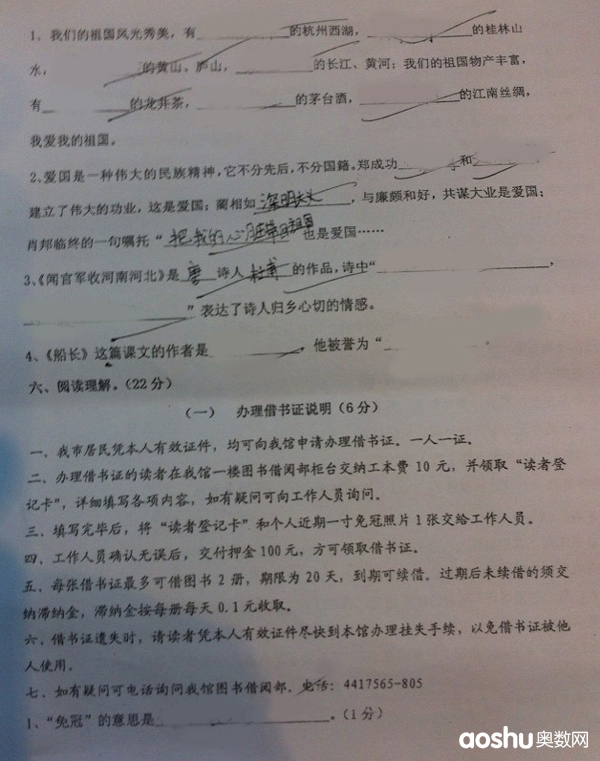 1、我们的祖国风光秀美，有__________的杭州西湖，__________的桂林山
水，__________的黄山、庐山，__________的长江、黄河；我们的祖国物产丰富，
有__________的龙井茶，__________的茅台酒，__________的江南丝绸，
我爱我的祖国。
2、爱国是一种伟大的民族精神，它不分先后，不分国籍。郑成功__________和__________
建立了伟大的功业，这是爱国；蔺相如 深明大义 ，与廉颇和好，共谋大业是爱国；
肖邦临终的一句嘱托“ 把我的心脏带回祖国 也是爱国……
3、《闻官军收河南河北》是 唐 诗人 杜甫 的作品，诗中“__________，
__________”表达了诗人归乡心切的情感。
4、《船长》这篇课文的作者是__________，他被誉为“__________
六、阅读理解。（22分）
（一） 办理借书证说明（6分）
一、我市居民凭本人有效证件，均可向我馆申请办理借书证。一人一证。
二、办理借书证的读者在我馆一楼图书借阅部柜台交纳工本费 10 元，并领取“读者登
记卡”，详细填写各项内容，如有疑问可向工作人员询问。
三、填写完毕后，将“读者登记卡”和个人近期一寸免冠照片1张交给工作人员。
四、工作人员确认无误后，交付押金100元，方可领取借书证。
五、每张借书证最多可借图书 2 册，期限为 20 天，到期可续借。过期后未续借的须交
纳滞纳金，滞纳金按每册每天 0.1元收取。
六、借书证遗失时，请读者凭本人有效证件尽快到本馆办理挂失手续，以免借书证被他
人使用。
七、如有疑问可电话询问我馆图书借阅部。电话：4417565-805
1、“免冠”的意思是__________。（1分）
aoshu奥数网